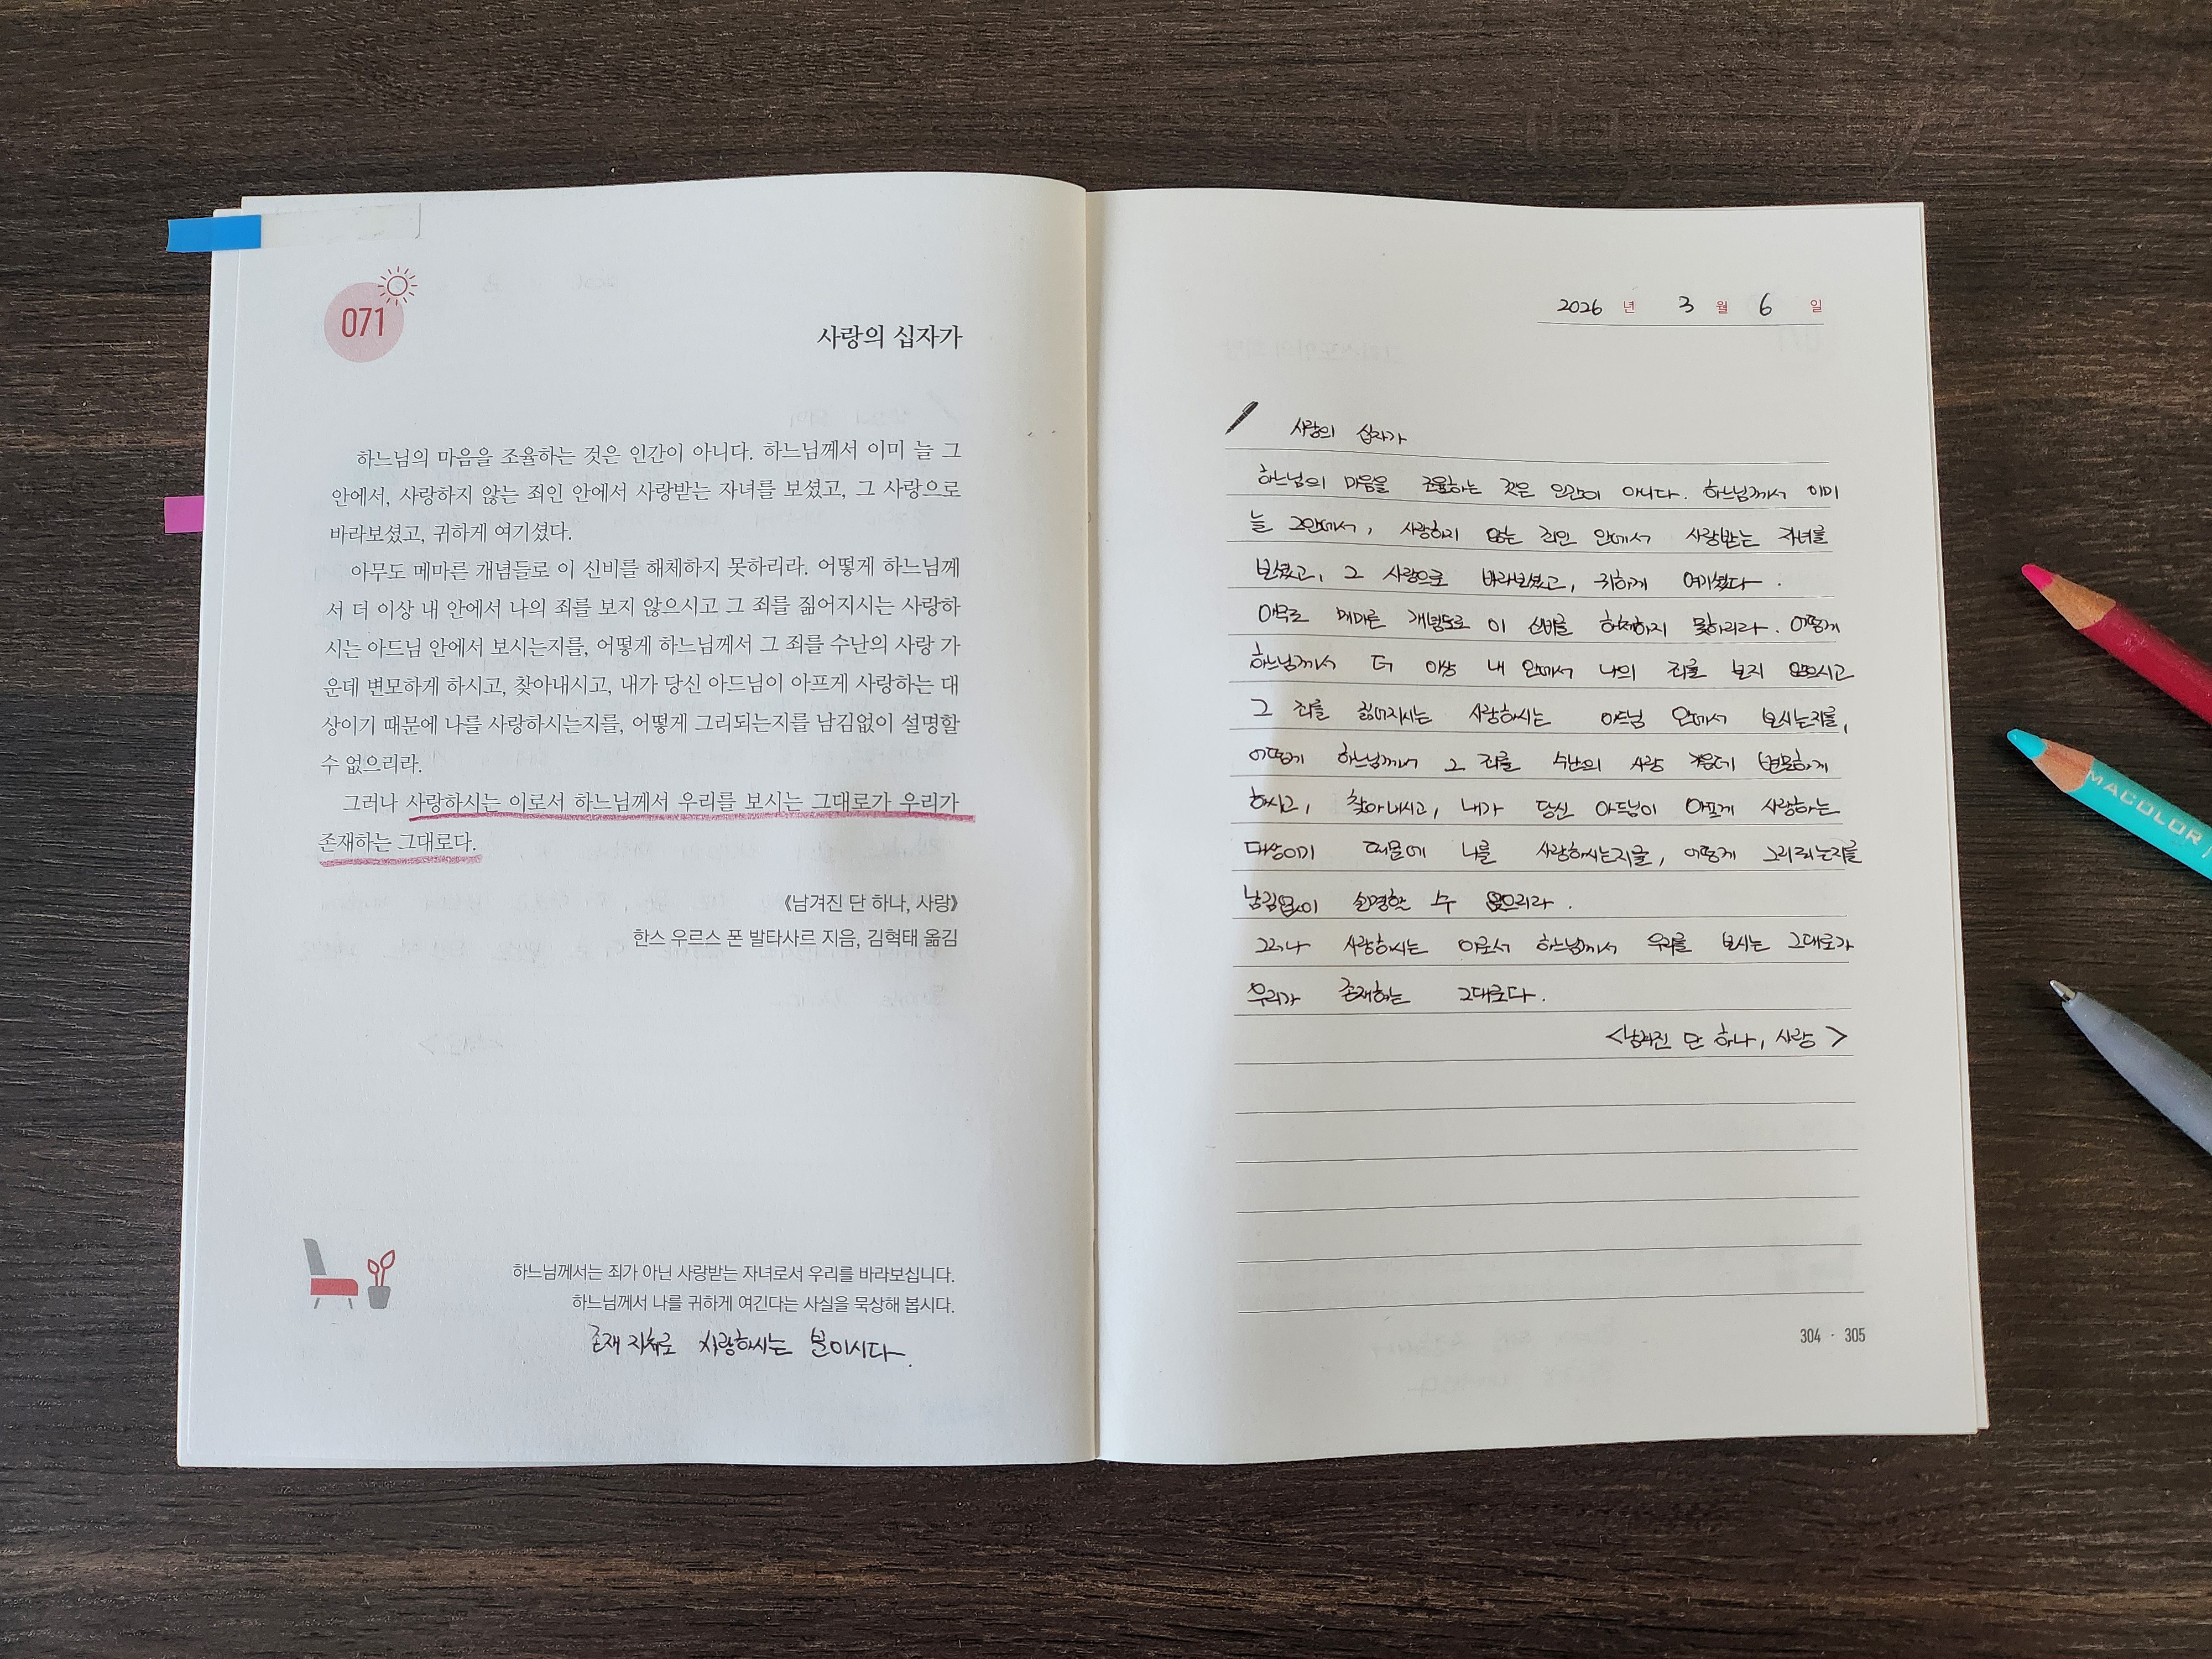 071
사랑의 십자가
하느님의 마음을 조율하는 것은 인간이 아니다. 하느님께서 이미 늘 그
안에서, 사랑하지 않는 죄인 안에서 사랑받는 자녀를 보셨고, 그 사랑으로
바라보셨고, 귀하게 여기셨다.
아무도 메마른 개념들로 이 신비를 해체하지 못하리라. 어떻게 하느님께
서 더 이상 내 안에서 나의 죄를 보지 않으시고 그 죄를 짊어지시는 사랑하
시는 아드님 안에서 보시는지를, 어떻게 하느님께서 그 죄를 수난의 사랑 가
운데 변모하게 하시고, 찾아내시고, 내가 당신 아드님이 아프게 사랑하는 대
상이기 때문에 나를 사랑하시는지를, 어떻게 그리되는지를 남김없이 설명할
수 없으리라.
그러나 사랑하시는 이로서 하느님께서 우리를 보시는 그대로가 우리가
존재하는 그대로다.
《남겨진 단 하나, 사랑》
한스 우르스 폰 발타사르 지음, 김혁태 옮김
하느님께서는 죄가 아닌 사랑받는 자녀로서 우리를 바라보십니다.
하느님께서 나를 귀하게 여긴다는 사실을 묵상해 봅시다.
존재 자체로 사랑하시는 분이시다.
2026 년 3 월 6 일
사랑의 십자가
하느님의 마음을 조율하는 것은 인간이 아니다. 하느님께서 이미
늘 그안에서, 사랑하지 않는 죄인 안에서 사랑받는 자녀를
보셨고, 그 사랑으로 바라보셨고, 귀하게 여기셨다.
아무도 메마른 개념들로 이 신비를 해체하지 못하리라. 어떻게
하느님께서 더 이상 내 안에서 나의 죄를 보지 않으시고
그 죄를 짊어지시는 사랑하시는 아드님 안에서 보시는지를,
어떻게 하느님께서 그 죄를 수난의 사랑 가운데 변모하게
하시고, 찾아내시고, 내가 당신 아드님이 아프게 사랑하는
대상이기 때문에 나를 사랑하시는지를, 어떻게 그리되는지를
남김없이 설명할 수 없으리라.
그러나 사랑하시는 이로서 하느님께서 우리를 보시는 그대로가
우리가 존재하는 그대로다.
<남겨진 단 하나, 사랑>
304 · 305
MACOLOR